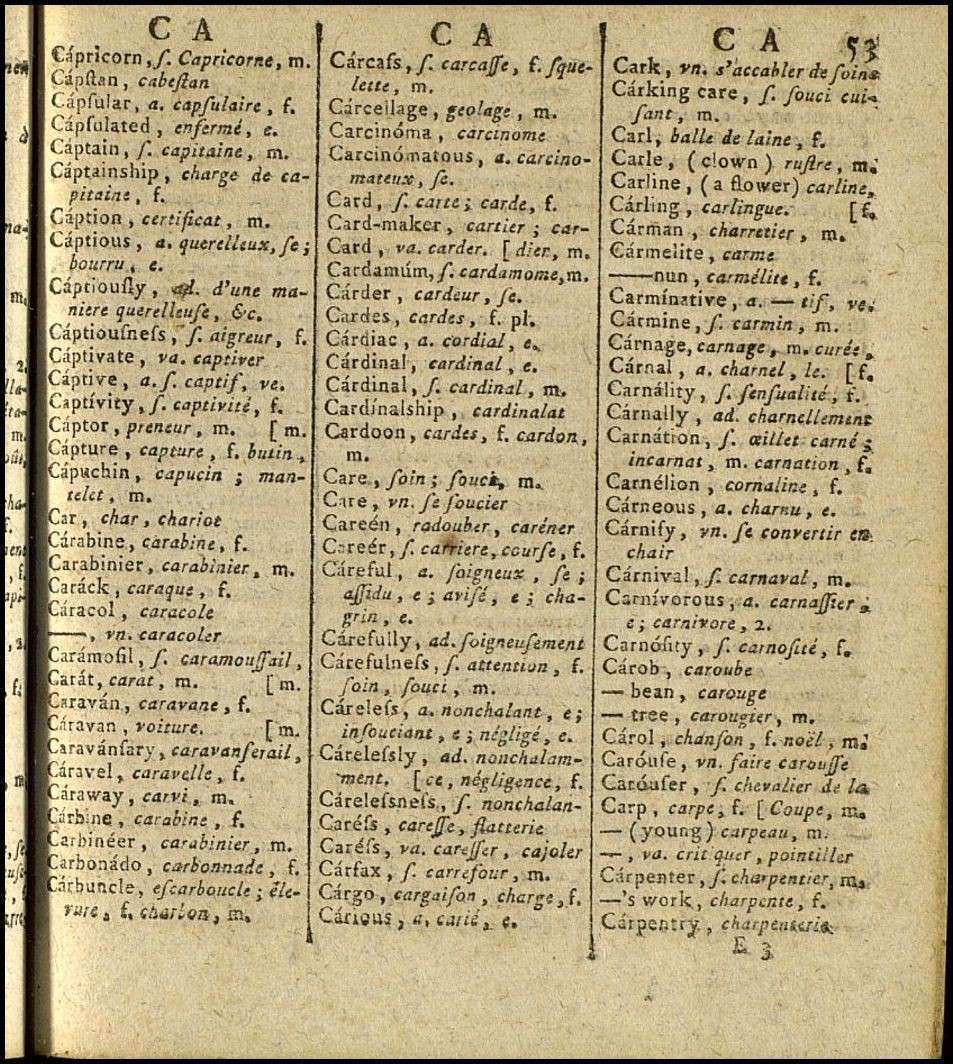 C A
Cápricorn, ſ. Capricorne, m.
Cápſtan, cabeſtan
Cápſular, a. capſulaire, f.
Cápſulated, enfermé, e.
Cáptain, ſ. capitaine, m.
Cáptainship, charge de ca-
pitaine, f.
Cáption, certificat, m.
Cáptious, a. querelleux, ſe;
bourru, e.
Cáptiouſly, ad. d'une ma-
niere querelleuſe, &c.
Cáptiouſneſs, ſ. aigreur, f.
Cáptivate, va. captiver
Cáptive, a. ſ. captif, ve.
Captívity, ſ. captivité, f.
Cáptor, preneur, m. [m.
Cápture, capture, f. butin,
Cápuchin, capucin; man-
telet, m.
Car, char, chariot
Cárabine, carabine, f.
Carabinier, carabinier, m.
Caráck, caraque, f.
Cáracol, caracole
——, vn. caracoler
Carámoſil, ſ. caramouſſail,
Carát, carat, m. [m.
Caraván, caravane, f.
Cáravan, voiture. [m.
Caravánſary, caravanſerail,
Cáravel, caravelle, f.
Cáraway, carvi, m.
Cárbine, carabine, f.
Carbinéer, carabinier, m.
Carbonádo, carbonnade, f.
Cárbuncle, eſcarboucle; éle-
vure, f. charbon, m.
C A
Cárcaſs, ſ. carcaſſe, f. ſque-
lette, m.
Cárcellage, geolage, m.
Carcinóma, carcinome
Carcinómatous, a. carcino-
mateux, ſe.
Card, ſ. carte; carde, f.
Card-maker, cartier; car-
Card, va. carder. [dier, m.
Cardamúm, ſ. cardamome, m.
Cárder, cardeur, ſe.
Cardes, cardes, f. pl.
Cárdiac, a. cordial, e.
Cárdinal, cardinal, e.
Cárdinal, ſ. cardinal, m.
Cardínalship, cardinalat
Cardoon, cardes, f. cardon,
m.
Care, ſoin; ſouci, m.
Care, vn. ſe ſoucier
Careén, radouber, caréner
Careér, ſ. carriere, courſe, f.
Cáreful, a. ſoigneux, ſe;
aſſidu, e; aviſé, e; cha-
grin, e.
Cárefully, ad. ſoigneuſement
Cárefulneſs, ſ. attention, f.
ſoin, ſouci, m.
Cáreleſs, a. nonchalant, e;
inſouciant, e; négligé, e.
Cáreleſsly, ad. nonchalam-
ment. [ce, négligence, f.
Cáreleſsneſs, ſ. nonchalan-
Caréſs, careſſe, flatterie
Caréſs, va. careſſer, cajoler
Cárfax, ſ. carrefour, m.
Cárgo, cargaiſon, charge, f.
Cárious, a. carié, e.
C A 53
Cark, vn. s'accabler de ſoins
Cárking care, ſ. ſouci cui-
ſant, m.
Carl, balle de laine, f.
Carle, (clown) ruſtre, m.
Carline, (a flower) carline,
Cárling, carlingue. [f.
Cárman, charretier, m.
Cármelite, carme
——nun, carmélite, f.
Carmínative, a. — tif, ve.
Cármine, ſ. carmin, m.
Cárnage, carnage, m. curée,
Cárnal, a. charnel, le. [f.
Carnálity, ſ. ſenſualité, f.
Cárnally, ad. charnellement
Carnátion, ſ. œillet carné;
incarnat, m. carnation, f.
Carnélion, cornaline, f.
Cárneous, a. charnu, e.
Cárnify, vn. ſe convertir en
chair
Cárnival, ſ. carnaval, m.
Carnívorous, a. carnaſſier,
e; carnivore, 2.
Carnóſity, ſ. carnoſité, f.
Cárob, caroube
— bean, carouge
— tree, carougier, m.
Cárol, chanſon, f. noël, m.
Caróuſe, vn. faire carouſſe
Caróuſer, ſ. chevalier de la
Carp, carpe, f. [Coupe, m.
— (young) carpeau, m.
—, va. critiquer, pointiller
Cárpenter, ſ. charpentier, m.
—'s work, charpente, f.
Cárpentry, charpenterie
E 3